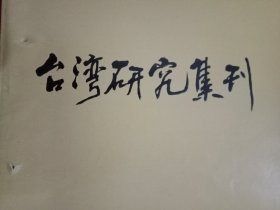 台湾研究集刊